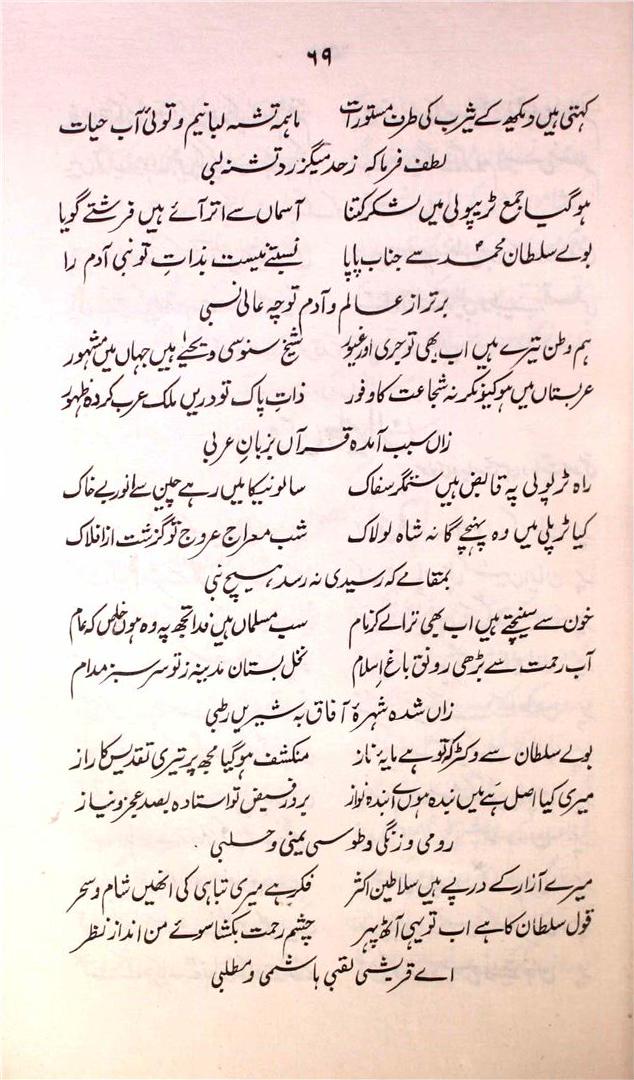 ۶۹
کہتی ہیں دیکھ کے یثرب کی طرف مستورات ماہمہ تشنہ لبانیم و توئی آب حیات
لطف فرما کہ زحد میگزرد تشنہ لبی
ہوگیا جمع ٹریپولی میں لشکر کتنا آسماں سے اتر آئے ہیں فرشتے گویا
بولے سلطان محمد سے جناب پاپا نسبتے نیست بذاتِ تو نبی آدم را
برتر از عالم و آدم تو چہ عالی نسبی
ہم وطن تیرے ہیں اب بھی تو جری اور غیور شیخ سنوسی دیکھیے ہیں جہاں میں مشہور
عربستاں میں ہو کیونکر نہ شجاعت کا وفور ذاتِ پاک تو دریں ملک عرب کردہ ظہور
زاں سبب آمدہ قرآں بزبانِ عربی
راہ ٹرپولی پہ قابض ہیں ستمگر سفاک سالونیکا میں رہے چین سے انور بے خاک
کیا ٹرپلی میں وہ پہنچے گا نہ شاہ لولاک شب معراج عروج تو گزشت از افلاک
بمقامے کہ رسیدی نہ رسد ہیچ نبی
خون سے سینچتے ہیں اب بھی نرالے گرنام سب مسلماں ہیں فدا تجھ پہ وہ ہوں خاص کہ عام
آب رحمت سے بڑھی رونق باغ اسلام نخل بستان مدینہ ز تو سرسبز مدام
زاں شدہ شہرۂ آفاق بہ شیریں رطبی
بولے سلطان سے وکٹر کہ تو ہے مایہ ناز منکشف ہوگیا مجھ پر تیری تقدیس کا راز
میری کیا اصل ہے میں بندہ ہوں اے بندہ نواز بر در فیض تو استادہ بصد عجز و نیاز
رومی و زنگی و طوسی یمنی و حلبی
میرے آزار کے درپے ہیں سلاطین اکثر فکر ہے میری تباہی کی انھیں شام و سحر
قول سلطان کا ہے اب تو یہی آٹھ پہر چشم رحمت بکشا سوئے من انداز نظر
اے قریشی لقبی ہاشمی و مطلبی